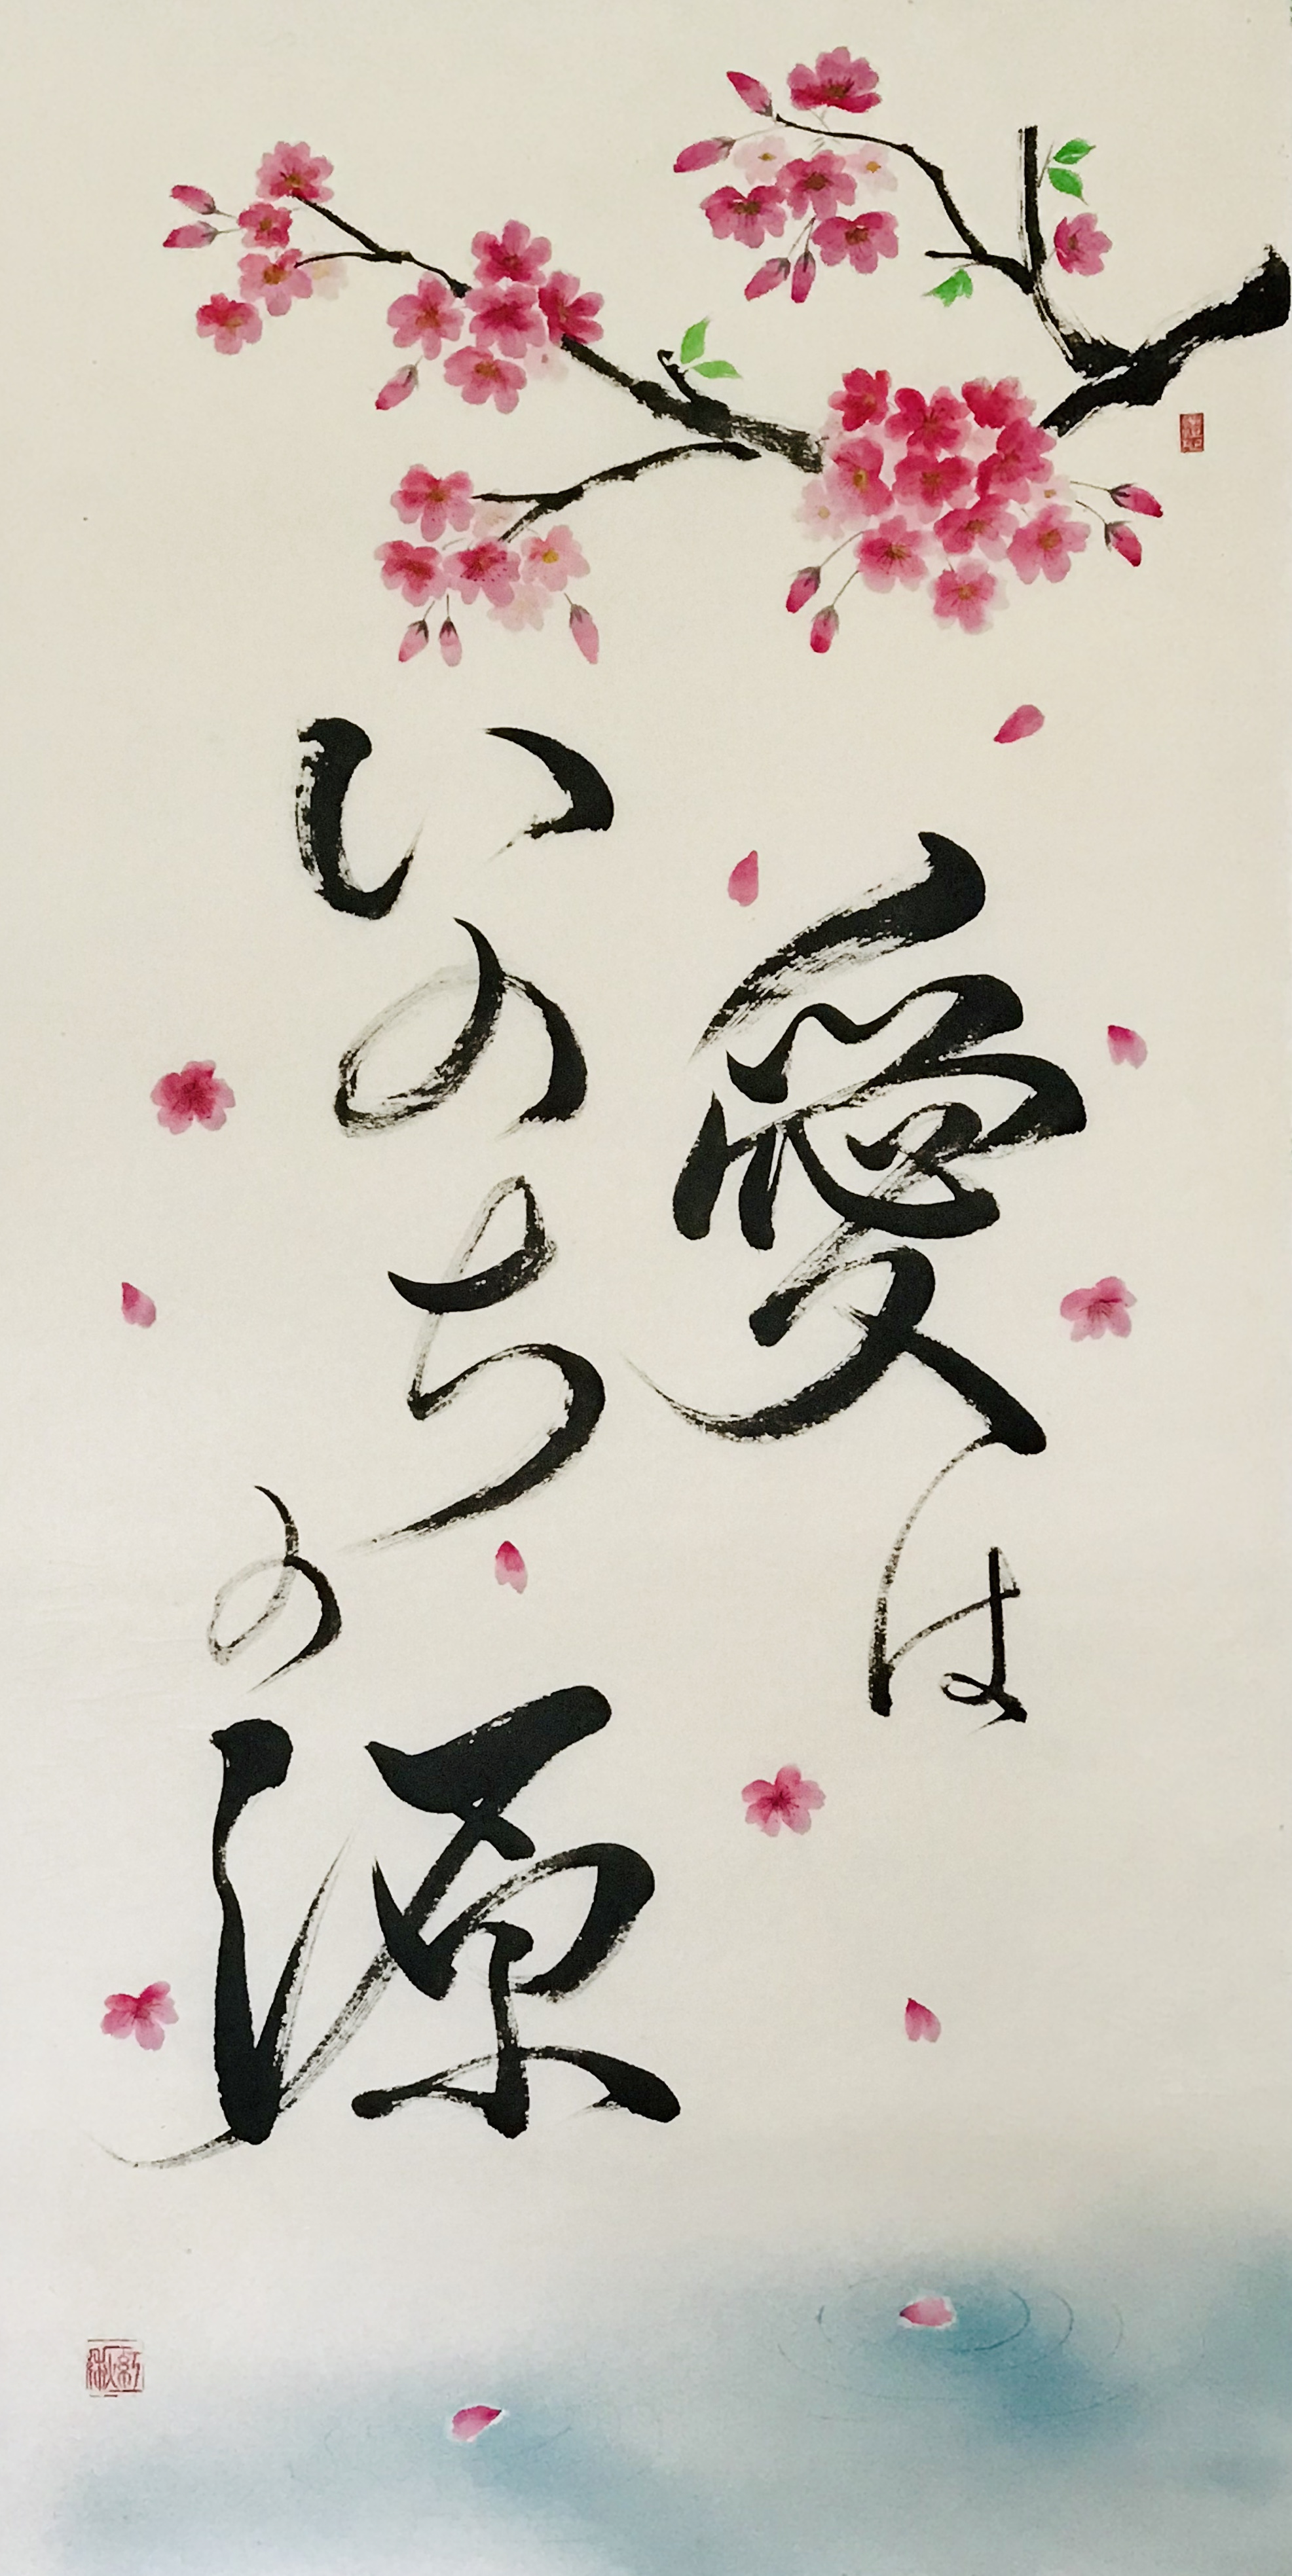 愛は
いのちの源